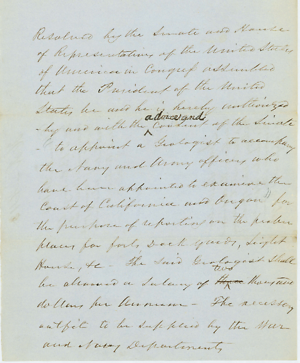 Resolved by the Senate and House
of Representatives of the United States
of America in Congress assembled
that the President of the United
States be and he is hereby authorized
advice and
- by and with the Consent of the Senate
- to appoint a Geologist to accompany
the Navy and Army officers who
have been appointed to examine the
Coast of California and Oregon for
the purpose of reporting on the proper
places for forts, Dock Yards, Light
House, &c - The said Geologist shall
two
be allowed a Salary of thousand
dollars per Annum - The necessary
outfit to be supplied by the War
and Navy Departments